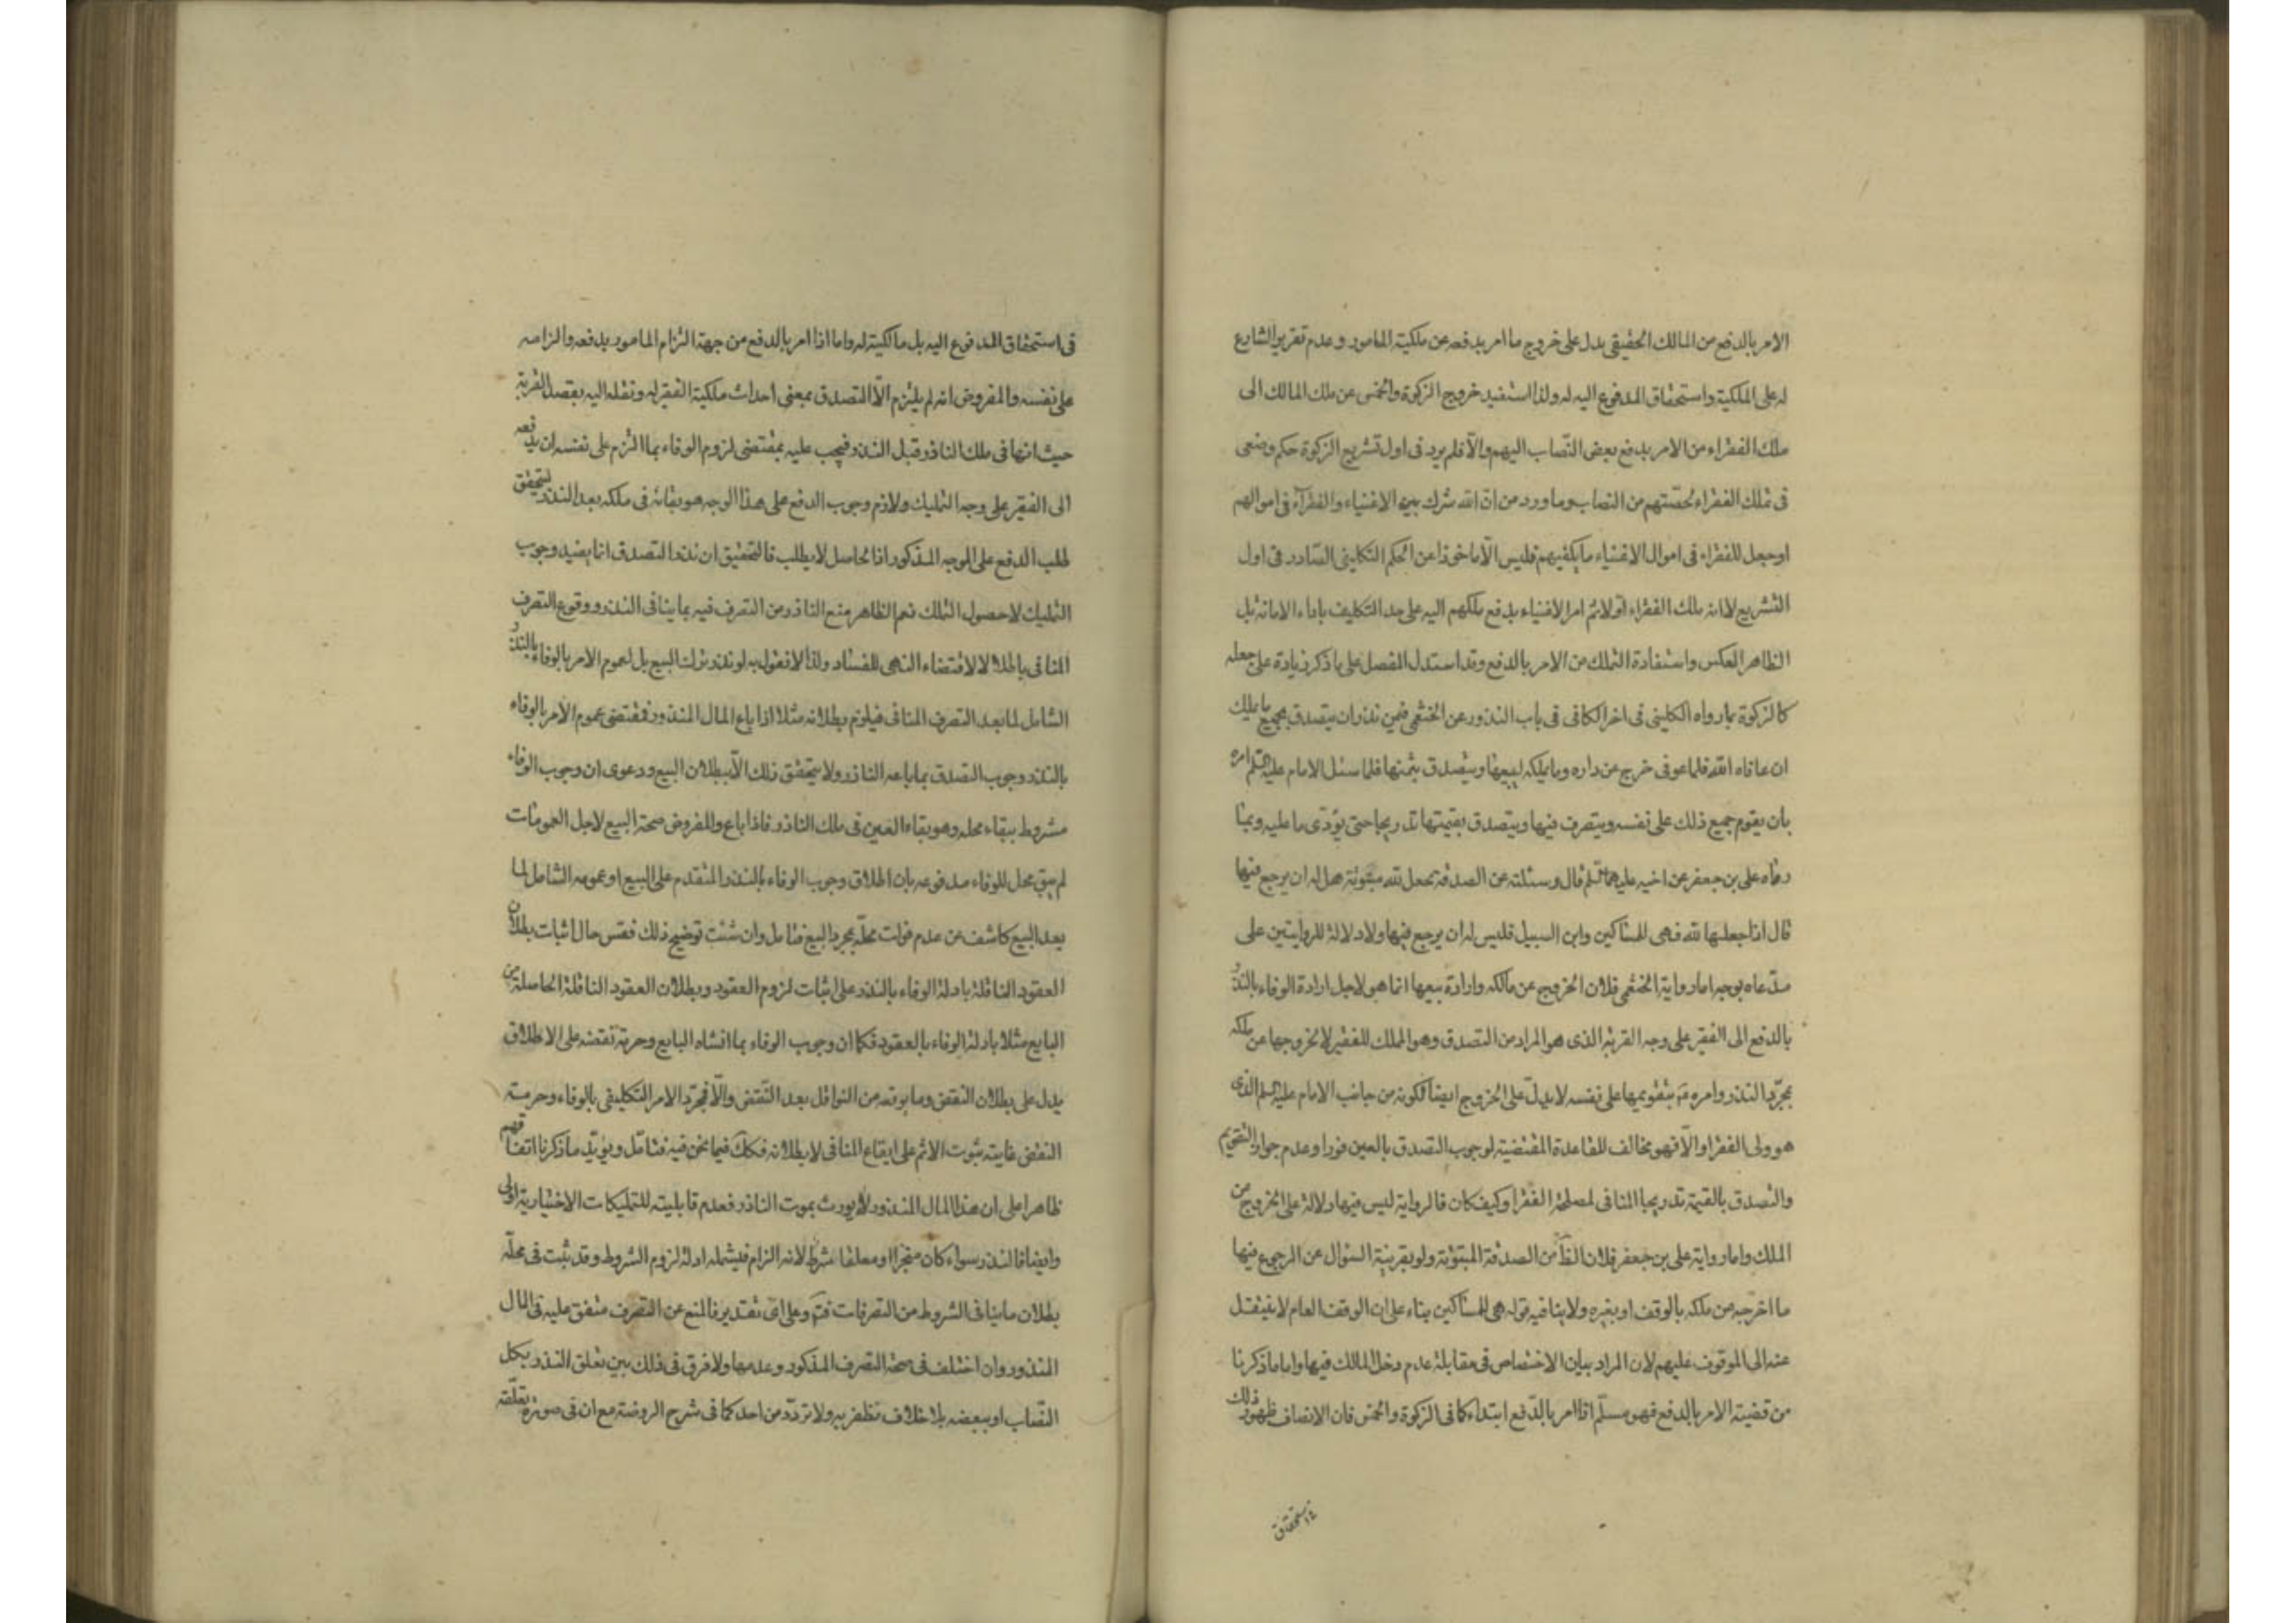 الامر بالدفع من المالك الحقيقى يدل على خروج ما امر بدفعه عن ملكية المامور وعدم تقرير الشارع
له على الملكية واستحقاق المدفوع اليه له ولذا استفيد خروج الزكوة والخمس عن ملك المالك الى
ملك الفقراء من الامر بدفع بعض النصاب اليهم والّا فلم يرد فى اول تشريع الزكوة حكم وضعى
فى تملك الفقراء لحصّتهم من النصاب وما ورد من انّ الله شرك بين الاغنياء والفقرآء فى اموالهم
او جعل للفقراء فى اموال الاغنياء ما يكفيهم فليس الّا ماخوذا عن الحكم التكليفى الصّادر فى اول
التشريع لا انه ملك الفقراء اولا ثم امر الاغنياء بدفع ملكهم اليه على حد التكليف باداء الامانة بل
الظاهر العكس واستفادة التملك من الامر بالدفع وقد استدل المفصل على ما ذكر زيادة على جعله
كالزكوة بما رواه الكلينى فى اخر الكافى فى باب النذور عن الخثعمى فيمن نذر ان يتصدق بجميع ما يملك
ان عافاه الله فلما عوفى خرج عن داره وما يملكه ليبيعها ويتصدق بثمنها فلما سئل الامام عليه السلم امره
بان يقوم جميع ذلك على نفسه ويتصرف فيها ويتصدق بقيمتها تدريجا حتى يؤدّى ما عليه وبما
رواه على بن جعفر عن اخيه عليهما السلم قال وسئلته عن الصدقة تجعل لله مبتوتة هل له ان يرجع فيها
قال اذا جعلها لله فهى للمساكين وابن السبيل فليس له ان يرجع فيها ولا دلالة للروايتين على
مدّعاه بوجه اما رواية الخثعمى فلان الخروج عن مالكه وارادة بيعها انما هو لاجل ارادة الوفاء بالنذر
بالدفع الى الفقير على وجه القربة الذى هو المراد من التصدق وهو المملك للفقير لا لخروجها عن ملكه
بمجرّد النذر وامره بتقويمها على نفسه لا يدلّ على الخروج ايضا لكونه من جانب الامام عليه السلم الذى
هو ولى الفقرا والّا فهو مخالف للقاعدة المقتضية لوجوب التصدق بالعين فورا وعدم جواز التقويم
والتصدق بالقيمة تدريجا المنافى لمصلحة الفقرا وكيف كان فالرواية ليس فيها دلالة على الخروج من
الملك واما رواية على بن جعفر فلان الظّ من الصدقة المبتوتة ولو بقرينة السؤال عن الرجوع فيها
ما اخرجه عن ملكه بالوقف او بغيره ولا ينافيه قوله هى للمساكين بناء على ان الوقف العام لا ينتقل
عنه الى الموقوف عليهم لان المراد بيان الاختصاص فى مقابلة عدم دخل المالك فيها واما ما ذكرنا
من قضية الامر بالدفع فهو مسلّم اذا امر بالدّفع ابتداء كما فى الزكوة والخمس فان الانصاف ظهور ذلك
استحقاق
فى استحقاق المدفوع اليه بل مالكيته له واما اذا امر بالدفع من جهة التزام المامور بدفعه والزامه
على نفسه والمفروض انه لم يلتزم الّا التصدق بمعنى احداث ملكية الفقير له ونقله اليه بقصد القربة
حيث انها فى ملك الناذر قبل النذر فيجب عليه بمقتضى لزوم الوفاء بما التزم على نفسه ان يدفعه
الى الفقير على وجه التمليك ولازم وجوب الدفع على هذا الوجه هو بقائه فى ملكه بعد النذر ليتحقق
طلب الدفع على الوجه المذكور اذا لحاصل لا يطلب فالتحقيق ان نذر التصدق انما يفيد وجوب
التمليك لا حصول التملك نعم الظاهر منع الناذر من التصرف فيه بما ينافى النذر ووقوع التصرف
المنافى باطلا لا لاقتضاء النهى للفساد ولذا لا نقول به لو نذر ترك البيع بل لعموم الامر بالوفاء بالنذر
الشامل لما بعد التصرف المنافى فيلزم بطلانه مثلا اذا باع المال المنذور فمقتضى عموم الامر بالوفاء
بالنذر وجوب التصدق بما باعه الناذر ولا يتحقق ذلك الّا ببطلان البيع ودعوى ان وجوب الوفاء
مشروط ببقاء محله وهو بقاء العين فى ملك الناذر فاذا باع والمفروض صحة البيع لاجل العمومات
لم يبق محل للوفاء مدفوعه بان اطلاق وجوب الوفاء بالنذر المتقدم على البيع او عمومه الشامل لما
بعد البيع كاشف عن عدم فوات محلّه بمجرد البيع فتامل وان شئت توضيح ذلك فقس حال اثبات بطلان
العقود الناقلة بادلة الوفاء بالنذر على اثبات لزوم العقود وبطلان العقود الناقلة الحاصلة من
البايع مثلا بادلة الوفاء بالعقود فكما ان وجوب الوفاء بما انشاه البايع وحرمة نقضه على الاطلاق
يدل على بطلان النقض وما يوقعه من النواقل بعد النّقض والّا فمجرّد الامر التكليفى بالوفاء وحرمة
النقض غايته ثبوت الاثم على ايقاع المنافى لا بطلانه فكك فيما نحن فيه فتامّل ويؤيّد ما ذكرنا اتفاقهم
ظاهرا على ان هذا المال المنذور لا يورث بموت الناذر فعدم قابليته للتمليكات الاختيارية اولى
وايضا فالنذر سواء كان منجزا او معلقا شرط لانه الزام فيشمله ادلة لزوم الشروط وقد ثبت فى محلّه
بطلان ما ينافى الشروط من التصرفات فتم وعلى اى تقدير فالمنع عن التصرف متفق عليه فى المال
المنذور وان اختلف فى صحة التصرف المذكور وعدمها ولا فرق فى ذلك بين تعلق النذر بكل
النّصاب او ببعضه بلا خلاف نظفر به ولا تردّد من احد كما فى شرح الروضة مع ان فى صورة تعلّقه